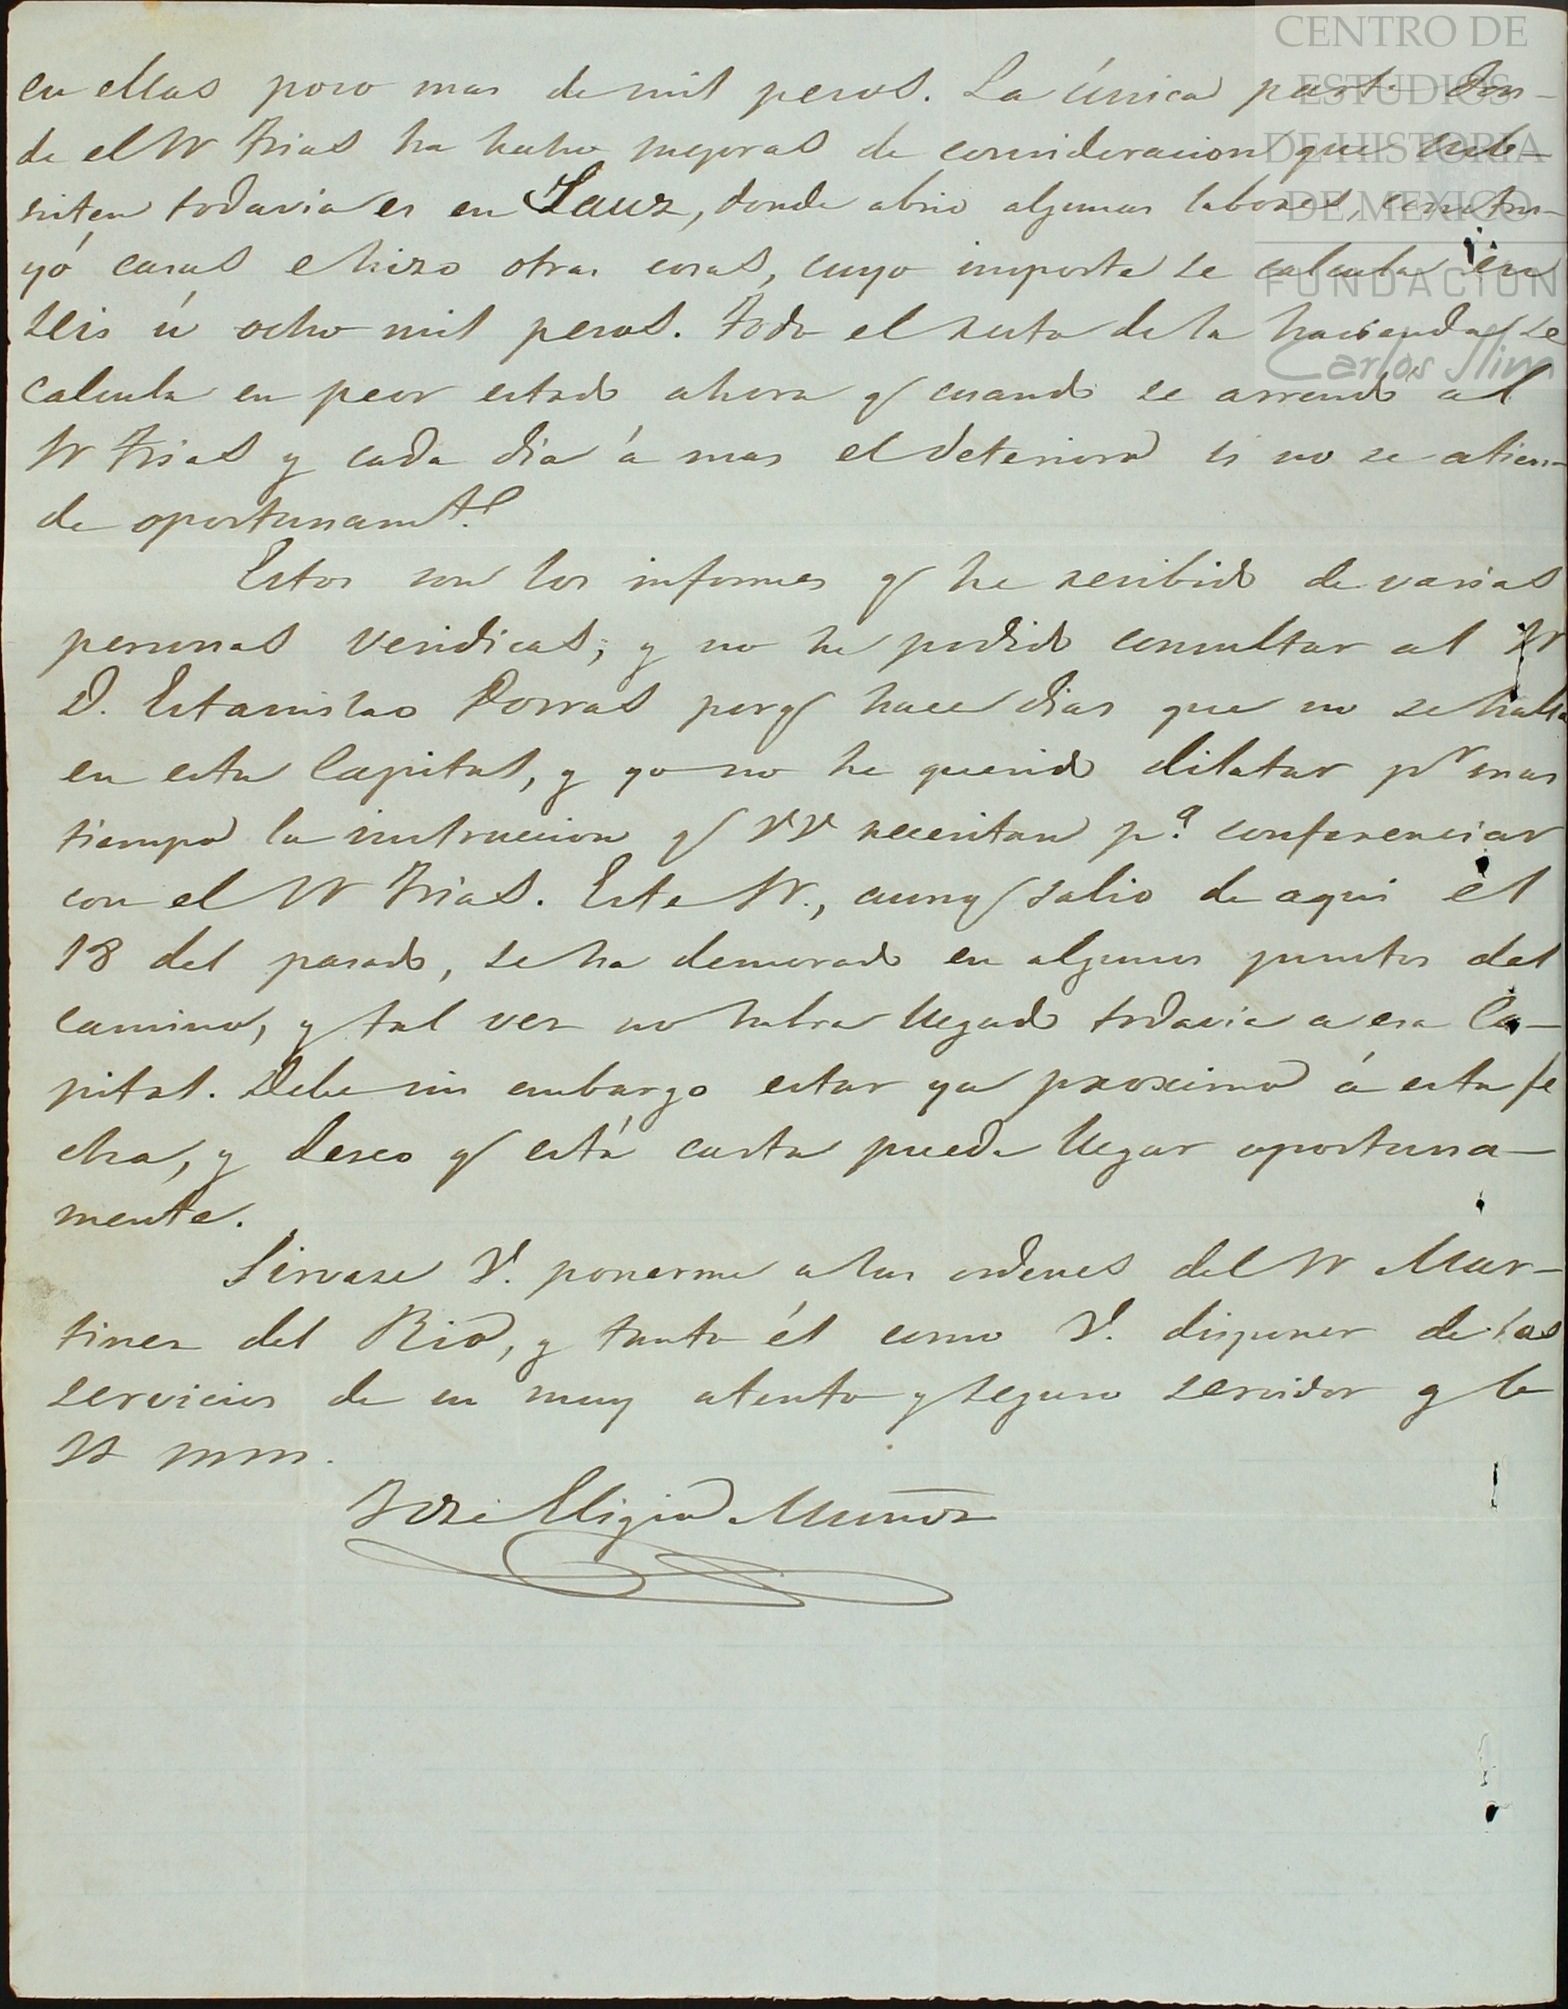 CENTRO DE
ESTUDIOS
DE HISTORIA
DE MEXICO
FUNDACION
Carlos Slim
en ellas poco mas de mil pesos. La única parte don-
de el Sr Trias ha hecho mejoras de consideracion que sub-
sisten todavia es en Sauz, donde abrio algunas labores, constru-
yó casas e hizo otras cosas, cuyo importe se calcula en
seis ú ocho mil pesos. Todo el resto de la hacienda se
calcula en peor estado ahora q cuando se arrendó al
Sr Trias y cada dia á mas el deterioro si no se atien-
de oportunamte.
Estos son los informes q he recibido de varias
personas veridicas; y no he podido consultar al Sr
D. Estanislao Porras porq hace dias que no se halla
en esta Capital, y yo no he querido dilatar pr mas
tiempo la instruccion q VV necesitan pa. conferenciar
con el Sr Trias. Este Sr., aunq salio de aqui el
18 del pasado, se ha demorado en algunos puntos del
camino, y tal vez no habra llegado todavia a esa Ca-
pital. Debe sin embargo estar ya proximo á esta fe
cha, y deseo q está carta pueda llegar oportuna-
mente.
Sirvase V. ponerme a las ordenes del Sr Mar-
tinez del Rio, y tanto él como V. disponer de los
servicios de su muy atento y seguro servidor q b
SS mm.
José Eligio Muñoz